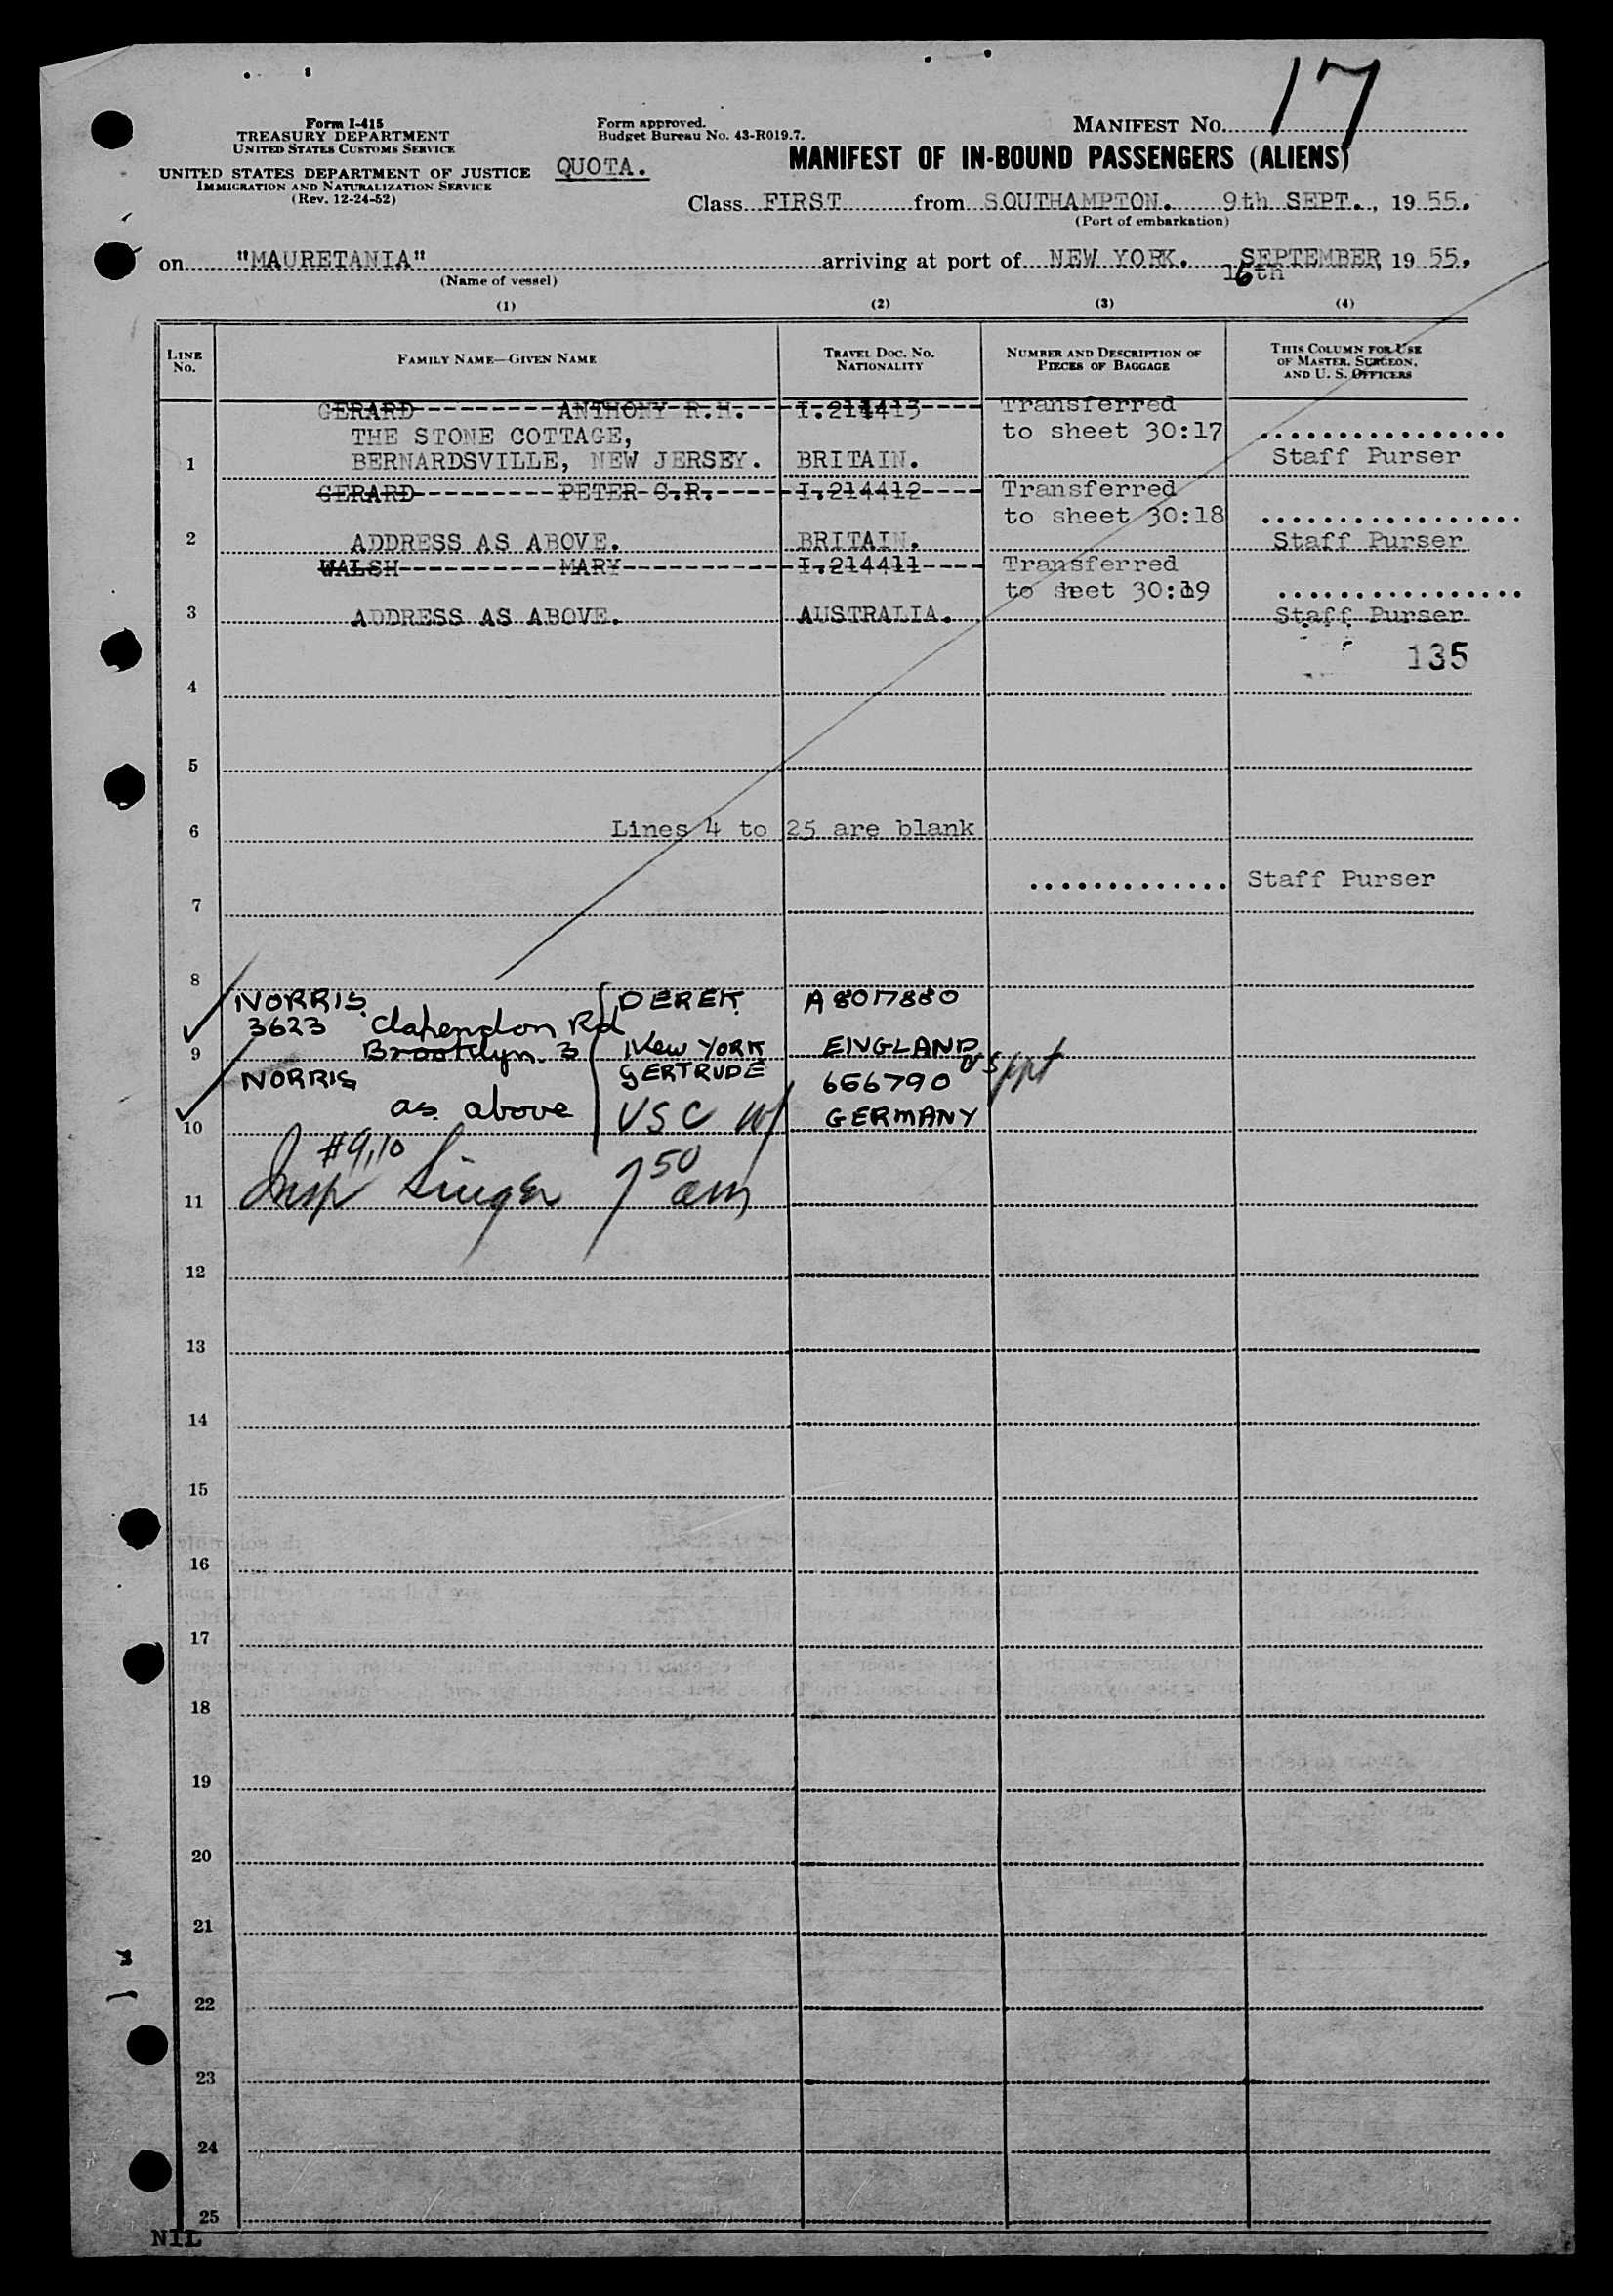 17
Form I-415
TREASURY DEPARTMENT
UNITED STATES CUSTOMS SERVICE
UNITED STATES DEPARTMENT OF JUSTICE
IMMIGRATION AND NATURALIZATION SERVICE
(Rev. 12-24-52)
Form approved.
Budget Bureau No. 43-R019.7.
QUOTA.
MANIFEST NO.
MANIFEST OF IN-BOUND PASSENGERS (ALIENS)
Class FIRST from SOUTHAMPTON. 9th SEPT., 19 55.
(Port of embarkation)
on "MAURETANIA" arriving at port of NEW YORK. SEPTEMBER, 19 55.
16th
(Name of vessel)
(1) (2) (3) (4)
LINE NO. FAMILY NAME—GIVEN NAME TRAVEL DOC. NO. NATIONALITY NUMBER AND DESCRIPTION OF PIECES OF BAGGAGE THIS COLUMN FOR USE OF MASTER, SURGEON, AND U. S. OFFICERS
GERARD---------ANTHONY R.H.---I.214413---- Transferred
THE STONE COTTAGE, to sheet 30:17 ................
1 BERNARDSVILLE, NEW JERSEY. BRITAIN. Staff Purser
GERARD---------PETER C.R.-----I.214412---- Transferred
to sheet 30:18 .................
2 ADDRESS AS ABOVE. BRITAIN. Staff Purser
WALSH----------MARY-----------I.214411---- Transferred
to sheet 30:19 ................
3 ADDRESS AS ABOVE. AUSTRALIA. Staff Purser
135
4
5
6 Lines 4 to 25 are blank
............. Staff Purser
7
8
NORRIS. DEREK A8017880
3623 Clarendon Rd
9 Brooklyn 3 New YORK ENGLAND
NORRIS GERTRUDE 656790 US ppt
10 as above USC w/ GERMANY
#9,10
11 Insp Singer 7 50 am
12
13
14
15
16
17
18
19
20
21
22
23
24
25
NIL